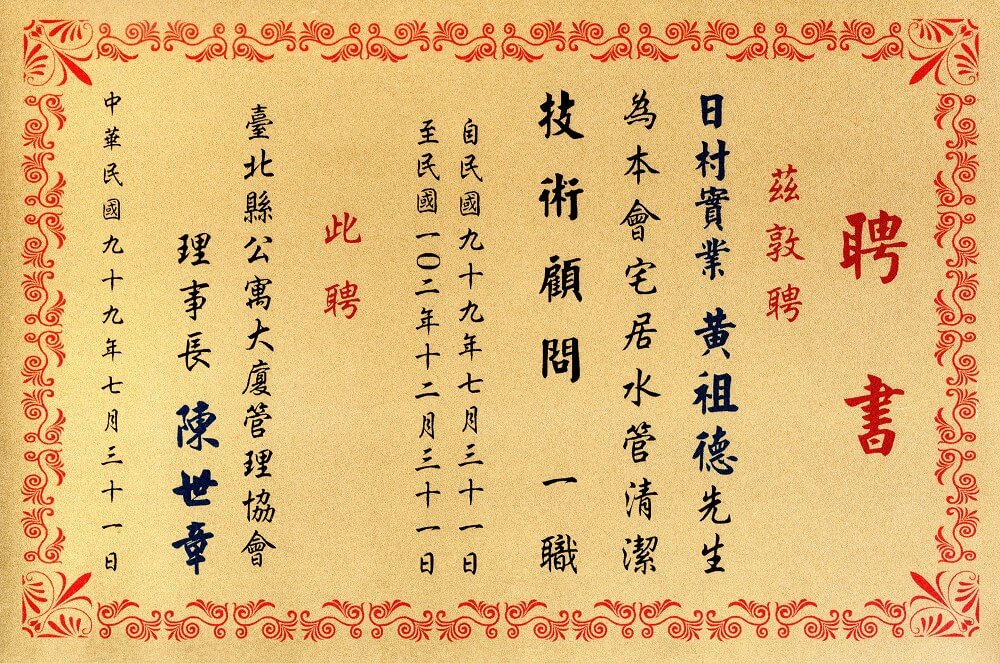 聘書
茲敦聘
日村實業 黃祖德先生
為本會宅居水管清潔
技術顧問 一職
自民國九十九年七月三十一日
至民國一〇二年十二月三十一日
此聘
臺北縣公寓大廈管理協會
理事長 陳世章
中華民國九十九年七月三十一日